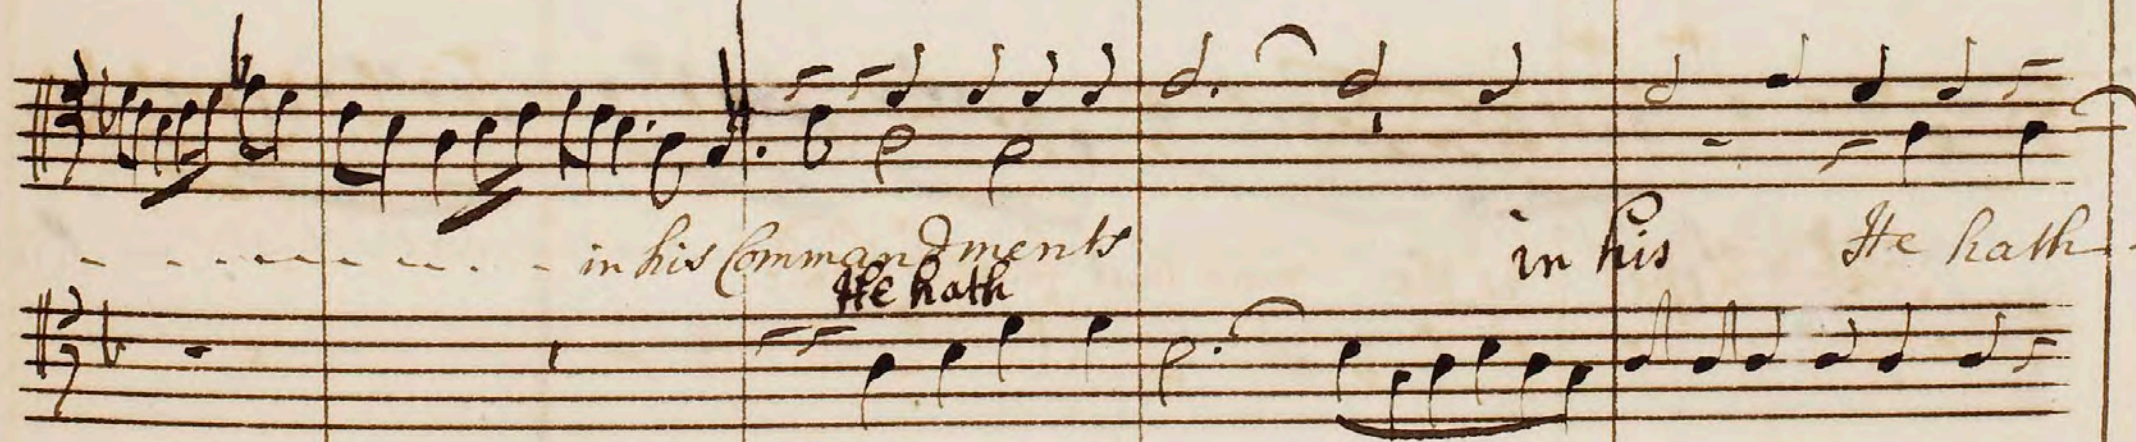 in his Commandments in his He hath
He hath